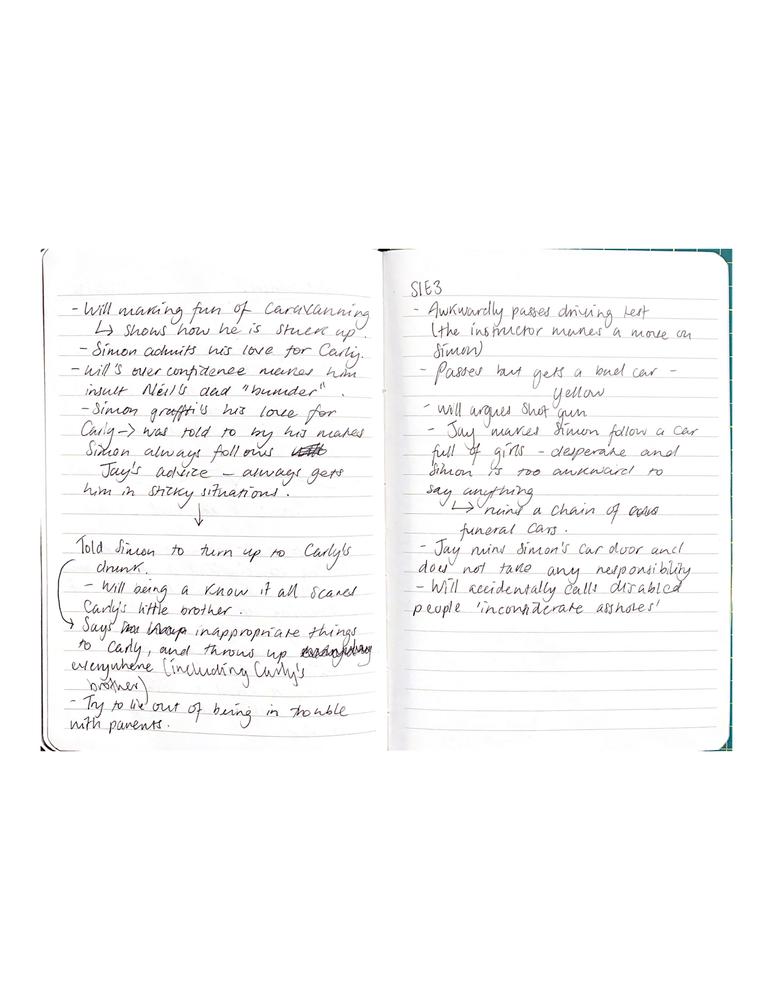 - Will making fun of caravanning
↳ shows how he is stuck up.
- Simon admits his love for Carly.
- Will's over confidence makes him
insult Neil's dad "bumder".
- Simon graffti's his love for
Carly -> was told to by his mates
Simon always follows
Jay's advice - always gets
him in sticky situations.
↓
Told Simon to turn up to Carly's
drunk.
- Will being a know it all scares
Carly's little brother.
Says inappropriate things
to Carly, and throws up
everywhere (including Carly's
brother)
- Try to lie out of being in trouble
with parents.
S1E3
- Awkwardly passes driving test
(the instructor makes a move on
Simon)
- Passes but gets a bad car -
yellow
- Will argues shot gun
- Jay makes Simon follow a car
full of girls - desperate and
Simon is too awkward to
say anything
↳ ruins a chain of
funeral cars.
- Jay ruins Simon's car door and
does not take any responsibility
- Will accidentally calls disabled
people 'inconsiderate assholes'